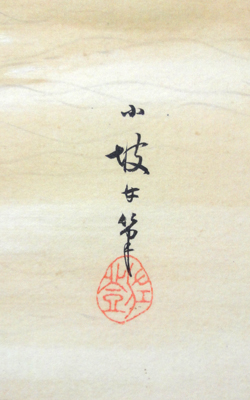 小坡女筆